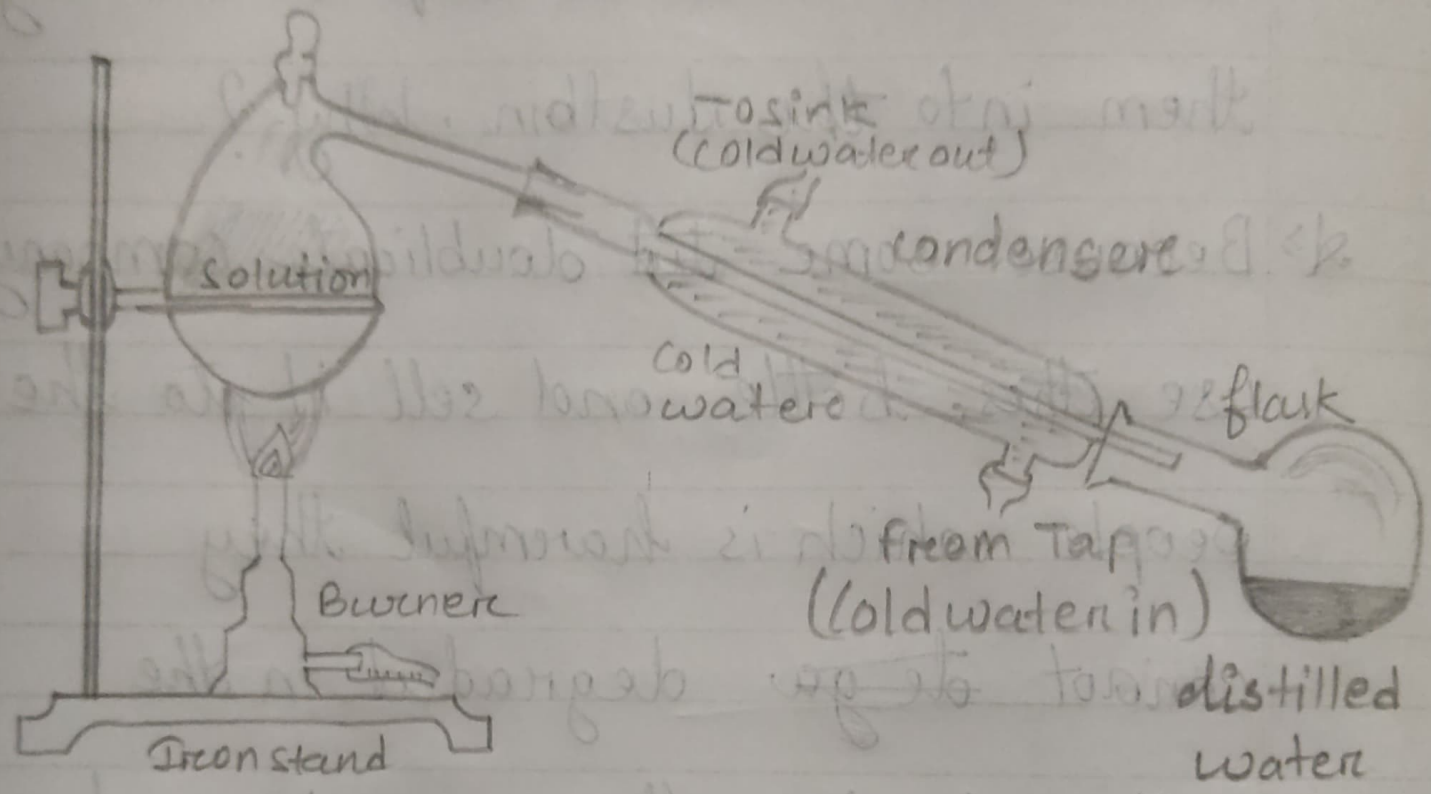 To sink
(cold water out)
condenser
solution
cold
water
flask
from Tap
(cold water in)
Burner
distilled
water
Iron stand